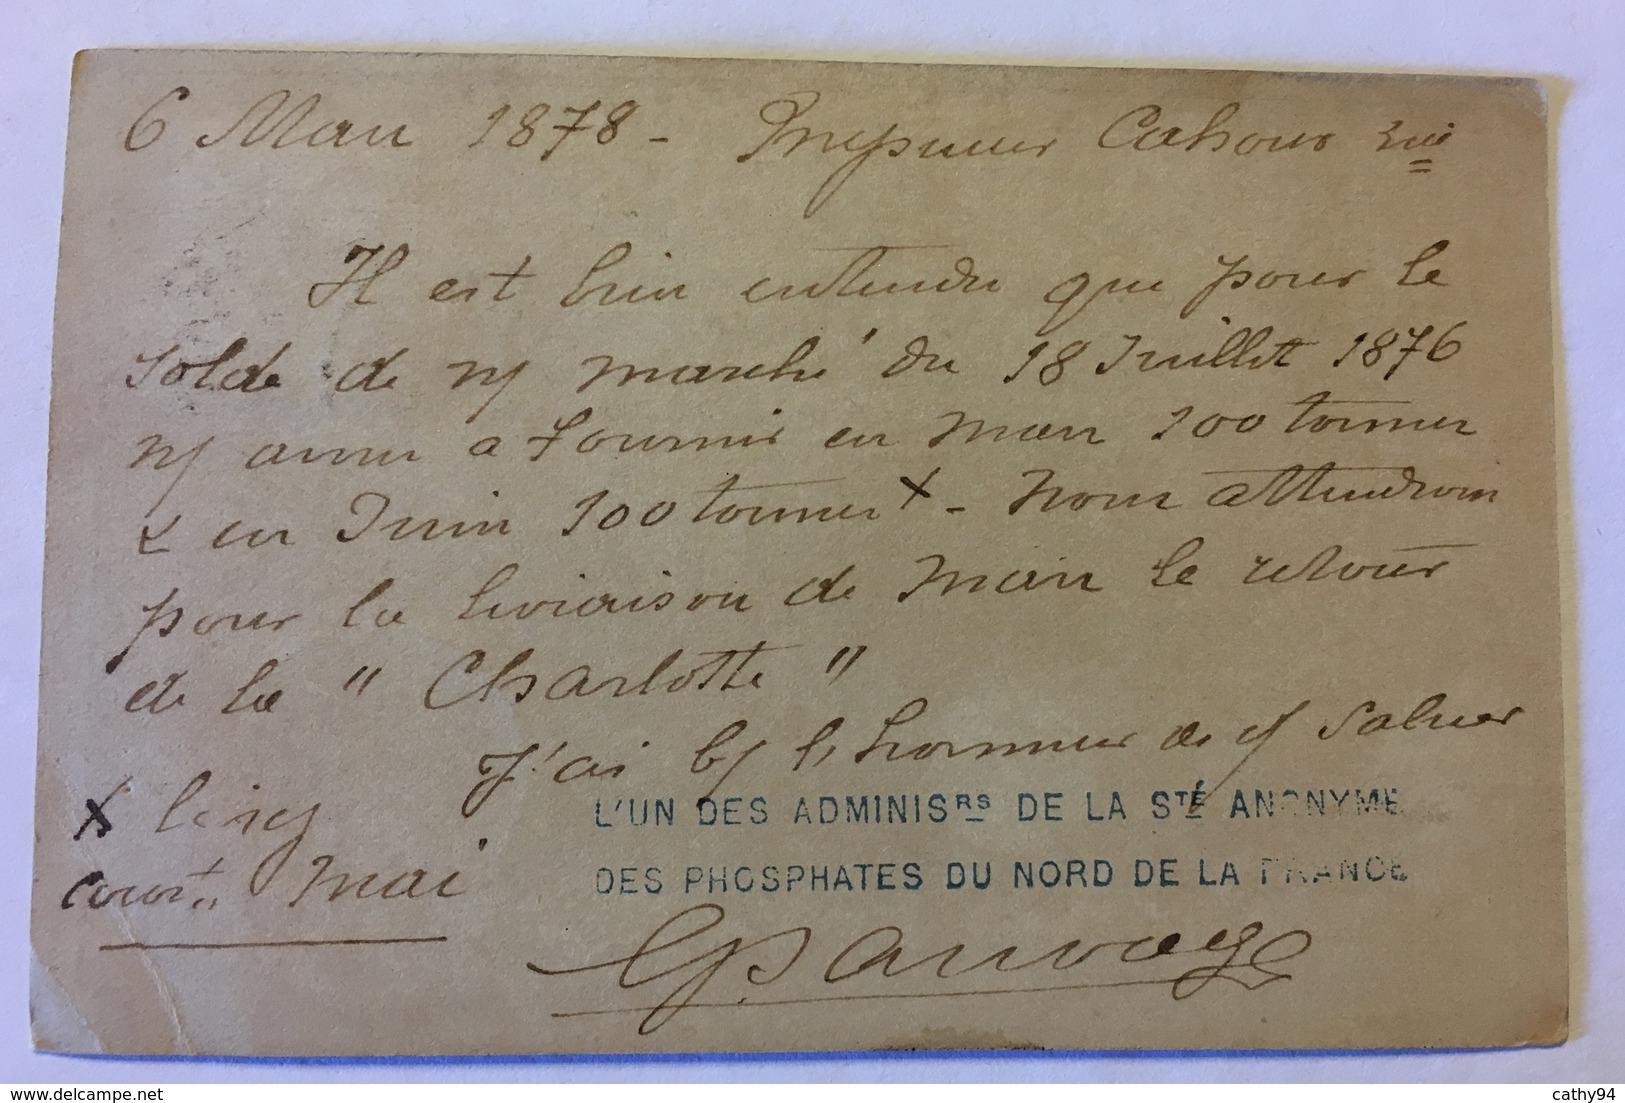 6 Mars 1878 - Messieurs Cahous
Il est bien entendu que pour le
solde de n/ marché du 18 Juillet 1876
n/ avons a fournir en mars 100 tonnes
& en Juin 100 tonnes x - Nous attendrons
pour la livraison de mars le retour
de la " Charlotte "
J'ai l'honneur de v/ saluer
L'UN DES ADMINISRS DE LA STÉ ANONYME
DES PHOSPHATES DU NORD DE LA FRANCE
x
court mai
delcampe.net
cathy94